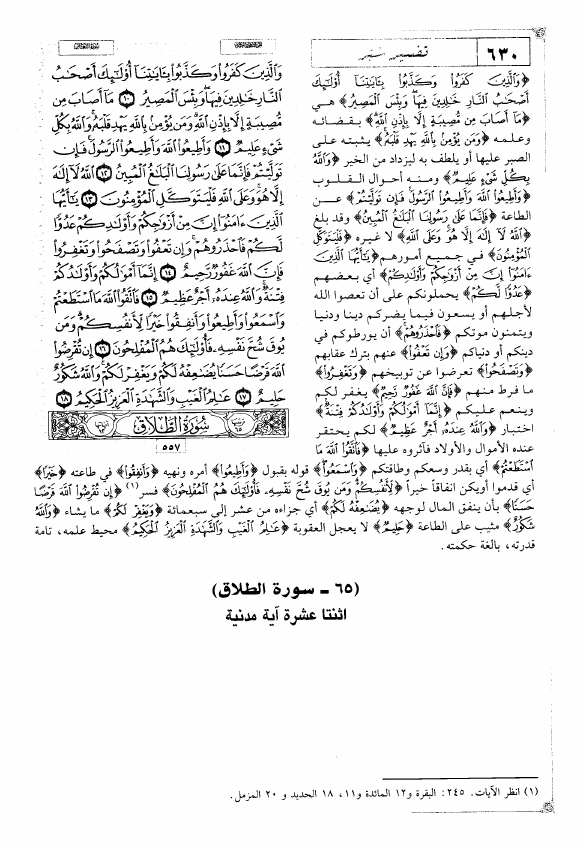 ٦٣٠
تفسير شبر
﴿وَالَّذِينَ كَفَرُوا وَكَذَّبُوا بِآيَاتِنَا أُوْلَئِكَ
أَصْحَابُ النَّارِ خَالِدِينَ فِيهَا وَبِئْسَ الْمَصِيرُ﴾ هي
﴿مَا أَصَابَ مِن مُّصِيبَةٍ إِلَّا بِإِذْنِ اللَّهِ﴾ بقضائه
وعلمه ﴿وَمَن يُؤْمِن بِاللَّهِ يَهْدِ قَلْبَهُ﴾ يثبته على
الصبر عليها أو يلطف به ليزداد من الخير ﴿وَاللَّهُ
بِكُلِّ شَيْءٍ عَلِيمٌ﴾ ومنه أحوال القلوب
﴿وَأَطِيعُوا اللَّهَ وَأَطِيعُوا الرَّسُولَ فَإِن تَوَلَّيْتُمْ﴾ عن
الطاعة ﴿فَإِنَّمَا عَلَى رَسُولِنَا الْبَلَاغُ الْمُبِينُ﴾ وقد بلغ
﴿اللَّهُ لَا إِلَهَ إِلَّا هُوَ وَعَلَى اللَّهِ﴾ لا غيره ﴿فَلْيَتَوَكَّلِ
الْمُؤْمِنُونَ﴾ في جميع أمورهم ﴿يَا أَيُّهَا الَّذِينَ
ءَامَنُوا إِنَّ مِنْ أَزْوَاجِكُمْ وَأَوْلَادِكُمْ﴾ أي بعضهم
﴿عَدُوًّا لَّكُمْ﴾ يحملونكم على أن تعصوا الله
لأجلهم أو يسعون فيما يضركم دينا ودنيا
ويتمنون موتكم ﴿فَاحْذَرُوهُمْ﴾ أن يورطوكم في
دينكم أو دنياكم ﴿وَإِن تَعْفُوا﴾ عنهم بترك عقابهم
﴿وَتَصْفَحُوا﴾ تعرضوا عن توبيخهم ﴿وَتَغْفِرُوا﴾
ما فرط منهم ﴿فَإِنَّ اللَّهَ غَفُورٌ رَّحِيمٌ﴾ يغفر لكم
وينعم عليكم ﴿إِنَّمَا أَمْوَالُكُمْ وَأَوْلَادُكُمْ فِتْنَةٌ﴾
اختبار ﴿وَاللَّهُ عِندَهُ أَجْرٌ عَظِيمٌ﴾ لكم يحتقر
عنده الأموال والأولاد فآثروه عليها ﴿فَاتَّقُوا اللَّهَ مَا
اسْتَطَعْتُمْ﴾ أي بقدر وسعكم وطاقتكم ﴿وَاسْمَعُوا﴾ قوله بقبول ﴿وَأَطِيعُوا﴾ أمره ونهيه ﴿وَأَنفِقُوا﴾ في طاعته ﴿خَيْرًا﴾
أي قدموا أويكن انفاقاً خيراً ﴿لِأَنفُسِكُمْ وَمَن يُوقَ شُحَّ نَفْسِهِ فَأُوْلَئِكَ هُمُ الْمُفْلِحُونَ﴾ فسر(١) ﴿إِن تُقْرِضُوا اللَّهَ قَرْضًا
حَسَنًا﴾ بأن ينفق المال لوجهه ﴿يُضَاعِفْهُ لَكُمْ﴾ أي جزاءه من عشر إلى سبعمائة ﴿وَيَغْفِرْ لَكُمْ﴾ ما يشاء ﴿وَاللَّهُ
شَكُورٌ﴾ مثيب على الطاعة ﴿حَلِيمٌ﴾ لا يعجل العقوبة ﴿عَالِمُ الْغَيْبِ وَالشَّهَادَةِ الْعَزِيزُ الْحَكِيمُ﴾ محيط علمه، تامة
قدرته، بالغة حكمته.
وَالَّذِينَ كَفَرُوا وَكَذَّبُوا بِآيَاتِنَا أُوْلَئِكَ أَصْحَابُ
النَّارِ خَالِدِينَ فِيهَا وَبِئْسَ الْمَصِيرُ ١٠ مَا أَصَابَ مِن
مُّصِيبَةٍ إِلَّا بِإِذْنِ اللَّهِ وَمَن يُؤْمِن بِاللَّهِ يَهْدِ قَلْبَهُ وَاللَّهُ بِكُلِّ
شَيْءٍ عَلِيمٌ ١١ وَأَطِيعُوا اللَّهَ وَأَطِيعُوا الرَّسُولَ فَإِن
تَوَلَّيْتُمْ فَإِنَّمَا عَلَى رَسُولِنَا الْبَلَاغُ الْمُبِينُ ١٢ اللَّهُ لَا إِلَهَ
إِلَّا هُوَ وَعَلَى اللَّهِ فَلْيَتَوَكَّلِ الْمُؤْمِنُونَ ١٣ يَا أَيُّهَا
الَّذِينَ ءَامَنُوا إِنَّ مِنْ أَزْوَاجِكُمْ وَأَوْلَادِكُمْ عَدُوًّا
لَّكُمْ فَاحْذَرُوهُمْ وَإِن تَعْفُوا وَتَصْفَحُوا وَتَغْفِرُوا
فَإِنَّ اللَّهَ غَفُورٌ رَّحِيمٌ ١٤ إِنَّمَا أَمْوَالُكُمْ وَأَوْلَادُكُمْ
فِتْنَةٌ وَاللَّهُ عِندَهُ أَجْرٌ عَظِيمٌ ١٥ فَاتَّقُوا اللَّهَ مَا اسْتَطَعْتُمْ
وَاسْمَعُوا وَأَطِيعُوا وَأَنفِقُوا خَيْرًا لِّأَنفُسِكُمْ وَمَن
يُوقَ شُحَّ نَفْسِهِ فَأُوْلَئِكَ هُمُ الْمُفْلِحُونَ ١٦ إِن تُقْرِضُوا
اللَّهَ قَرْضًا حَسَنًا يُضَاعِفْهُ لَكُمْ وَيَغْفِرْ لَكُمْ وَاللَّهُ شَكُورٌ
حَلِيمٌ ١٧ عَالِمُ الْغَيْبِ وَالشَّهَادَةِ الْعَزِيزُ الْحَكِيمُ ١٨
سُورَةُ الطَّلَاقِ
٥٥٧
(٦٥ - سورة الطلاق)
اثنتا عشرة آية مدنية
(١) انظر الآيات. ٢٤٥: البقرة و١٢ المائدة و١١، ١٨ الحديد و ٢٠ المزمل.